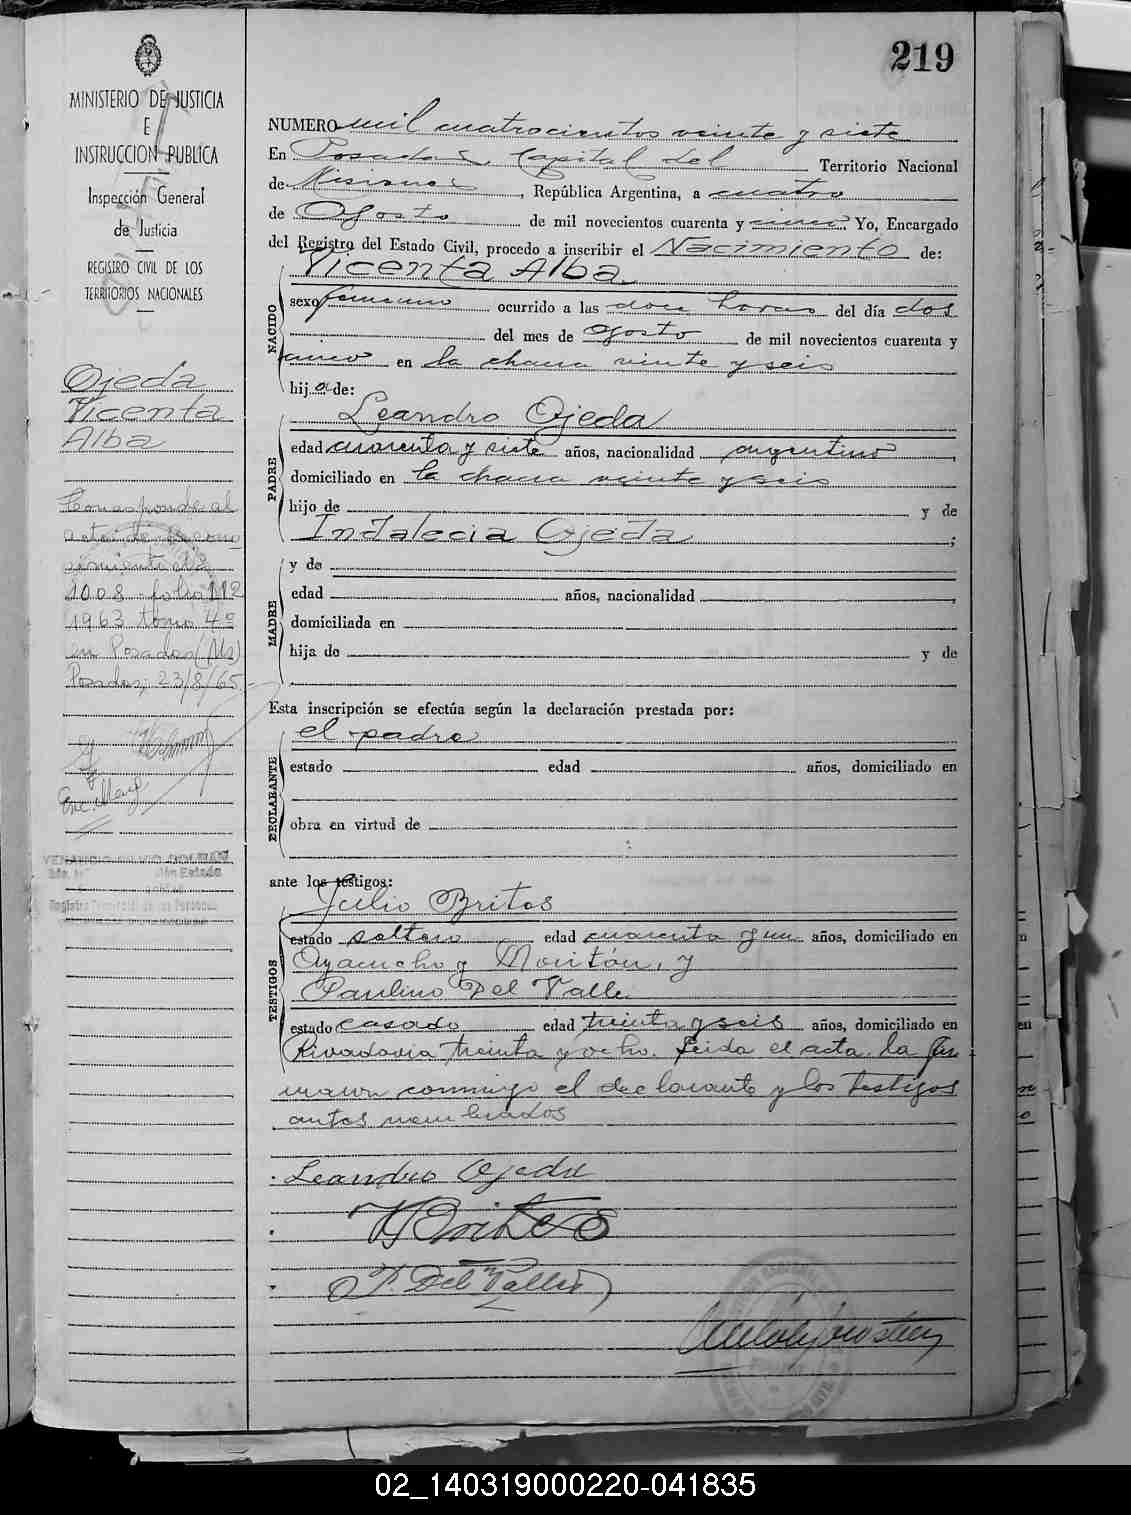 219
MINISTERIO DE JUSTICIA
E
INSTRUCCION PUBLICA
Inspección General
de Justicia
REGISTRO CIVIL DE LOS
TERRITORIOS NACIONALES
Ojeda
Vicenta
Alba
Corresponde al
acta de Recono
cimiento Nº
1008 folio 112
1963 tomo 4º
en Posadas (Ms)
Posadas, 23/8/65
NUMERO mil cuatrocientos veinte y siete
En Posadas, Capital del Territorio Nacional
de Misiones, República Argentina, a cuatro
de Agosto de mil novecientos cuarenta y cinco Yo, Encargado
del Registro del Estado Civil, procedo a inscribir el Nacimiento de:
NACIDO
Vicenta Alba
sexo femenino ocurrido a las doce horas del día dos
del mes de Agosto de mil novecientos cuarenta y
cinco en la chacra veinte y seis
hija de:
PADRE
Leandro Ojeda
edad cuarenta y siete años, nacionalidad argentino,
domiciliado en la chacra veinte y seis
hijo de y de
Indalecia Ojeda;
MADRE
y de
edad años, nacionalidad ,
domiciliada en
hija de y de
Esta inscripción se efectúa según la declaración prestada por:
DECLARANTE
el padre
estado edad años, domiciliado en
obra en virtud de
ante los testigos:
TESTIGOS
Julio Britos
estado soltero edad cuarenta y un años, domiciliado en
Ayacucho y , y
Paulino Del Valle
estado casado edad treinta y seis años, domiciliado en
Rivadavia treinta y ocho. Leida el acta, la fir
maron conmigo el declarante y los testigos
antes nombrados
Leandro Ojeda
Britos
P. Del Valle
02_140319000220-041835